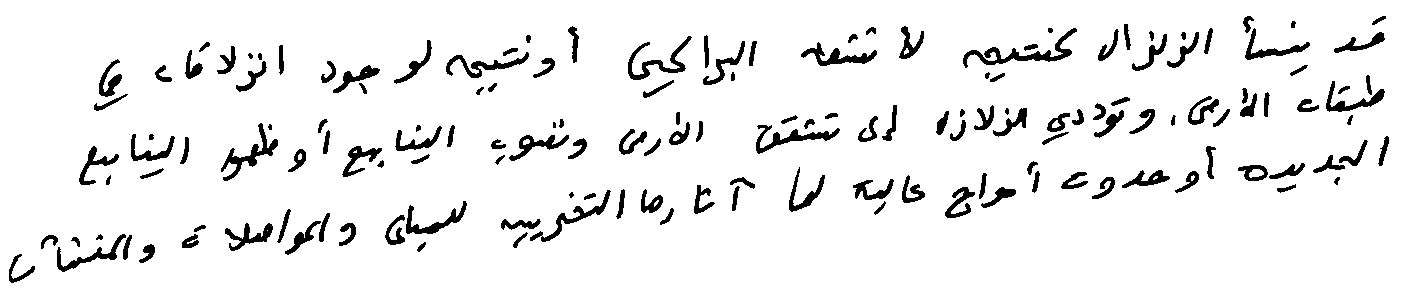 قد ينشأ الزلزال كنتيجه لأنشطه البراكين أو نتيجه لوجود انزلاقات في
طبقات الأرض. وتؤدي الزلازل إلى تشقق الأرض ونضوب الينابيع أو ظهور الينابيع
الجديده أو حدوث أمواج عالية لها آثارها التخريبيه للمباني والمواصلات والمنشآت